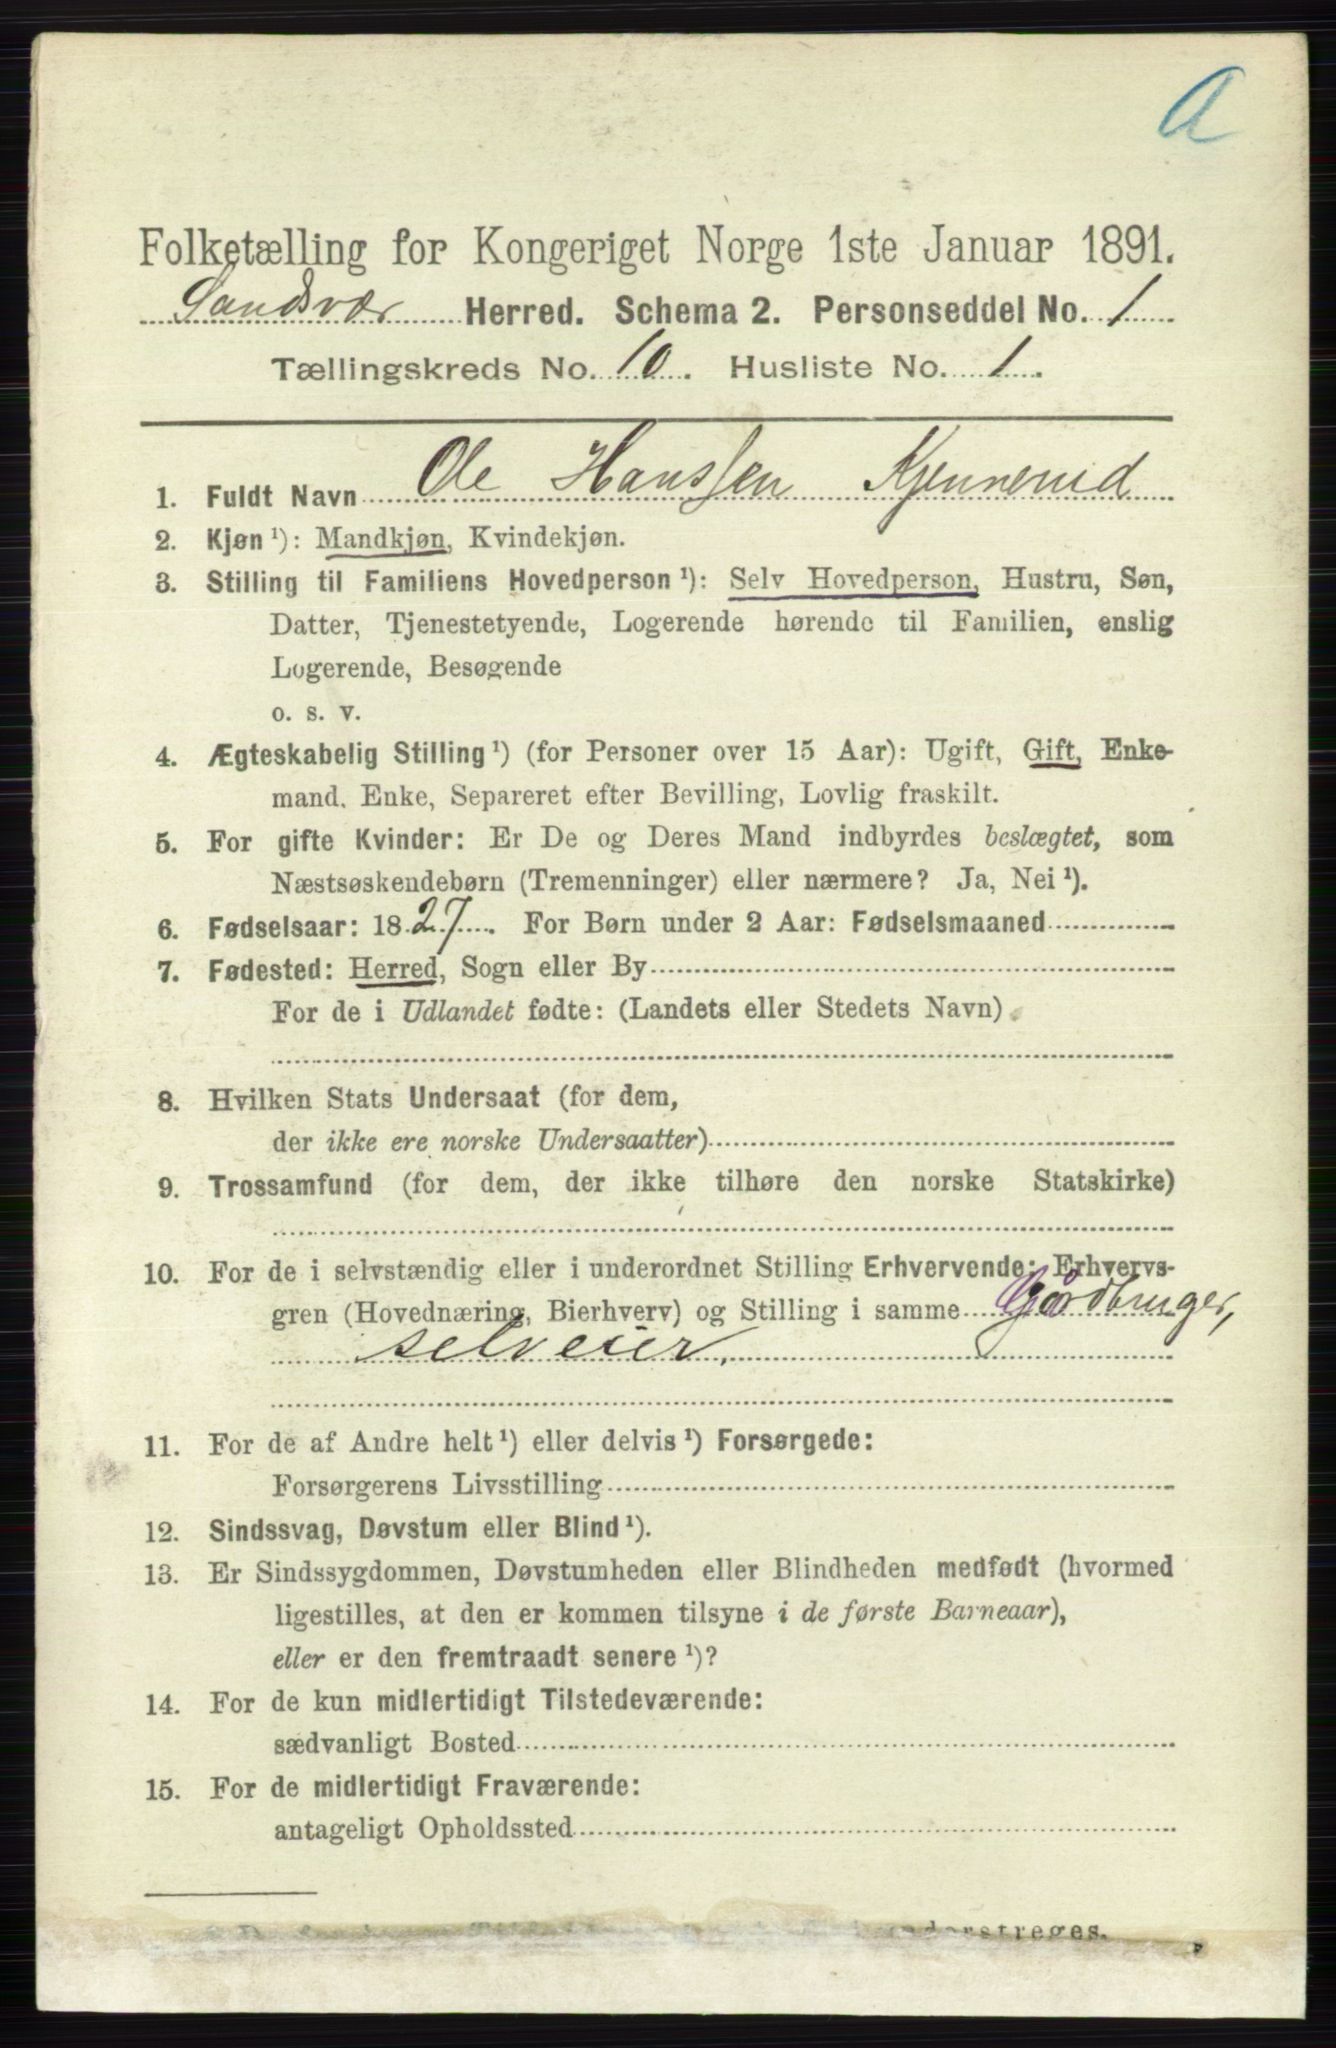 A
Folketælling for Kongeriget Norge 1ste Januar 1891.
Sandsvær Herred. Schema 2. Personseddel No. 1
Tællingskreds No. 10. Husliste No. 1.
1. Fuldt Navn Ole Hanssen Kjennerud
2. Kjøn ¹): Mandkjøn, Kvindekjøn.
3. Stilling til Familiens Hovedperson ¹): Selv Hovedperson, Hustru, Søn,
Datter, Tjenestetyende, Logerende hørende til Familien, enslig
Logerende, Besøgende
o. s. v.
4. Ægteskabelig Stilling ¹) (for Personer over 15 Aar): Ugift, Gift, Enke-
mand, Enke, Separeret efter Bevilling, Lovlig fraskilt.
5. For gifte Kvinder: Er De og Deres Mand indbyrdes beslægtet, som
Næstsøskendebørn (Tremenninger) eller nærmere? Ja, Nei ¹).
6. Fødselsaar: 1827. For Børn under 2 Aar: Fødselsmaaned
7. Fødested: Herred, Sogn eller By
For de i Udlandet fødte: (Landets eller Stedets Navn)
8. Hvilken Stats Undersaat (for dem,
der ikke ere norske Undersaatter)
9. Trossamfund (for dem, der ikke tilhøre den norske Statskirke)
10. For de i selvstændig eller i underordnet Stilling Erhvervende: Erhvervs-
gren (Hovednæring, Bierhverv) og Stilling i samme Gårdbruger,
selveier.
11. For de af Andre helt ¹) eller delvis ¹) Forsørgede:
Forsørgerens Livsstilling
12. Sindssvag, Døvstum eller Blind ¹).
13. Er Sindssygdommen, Døvstumheden eller Blindheden medfødt (hvormed
ligestilles, at den er kommen tilsyne i de første Barneaar),
eller er den fremtraadt senere ¹)?
14. For de kun midlertidigt Tilstedeværende:
sædvanligt Bosted
15. For de midlertidigt Fraværende:
antageligt Opholdssted
understreges.